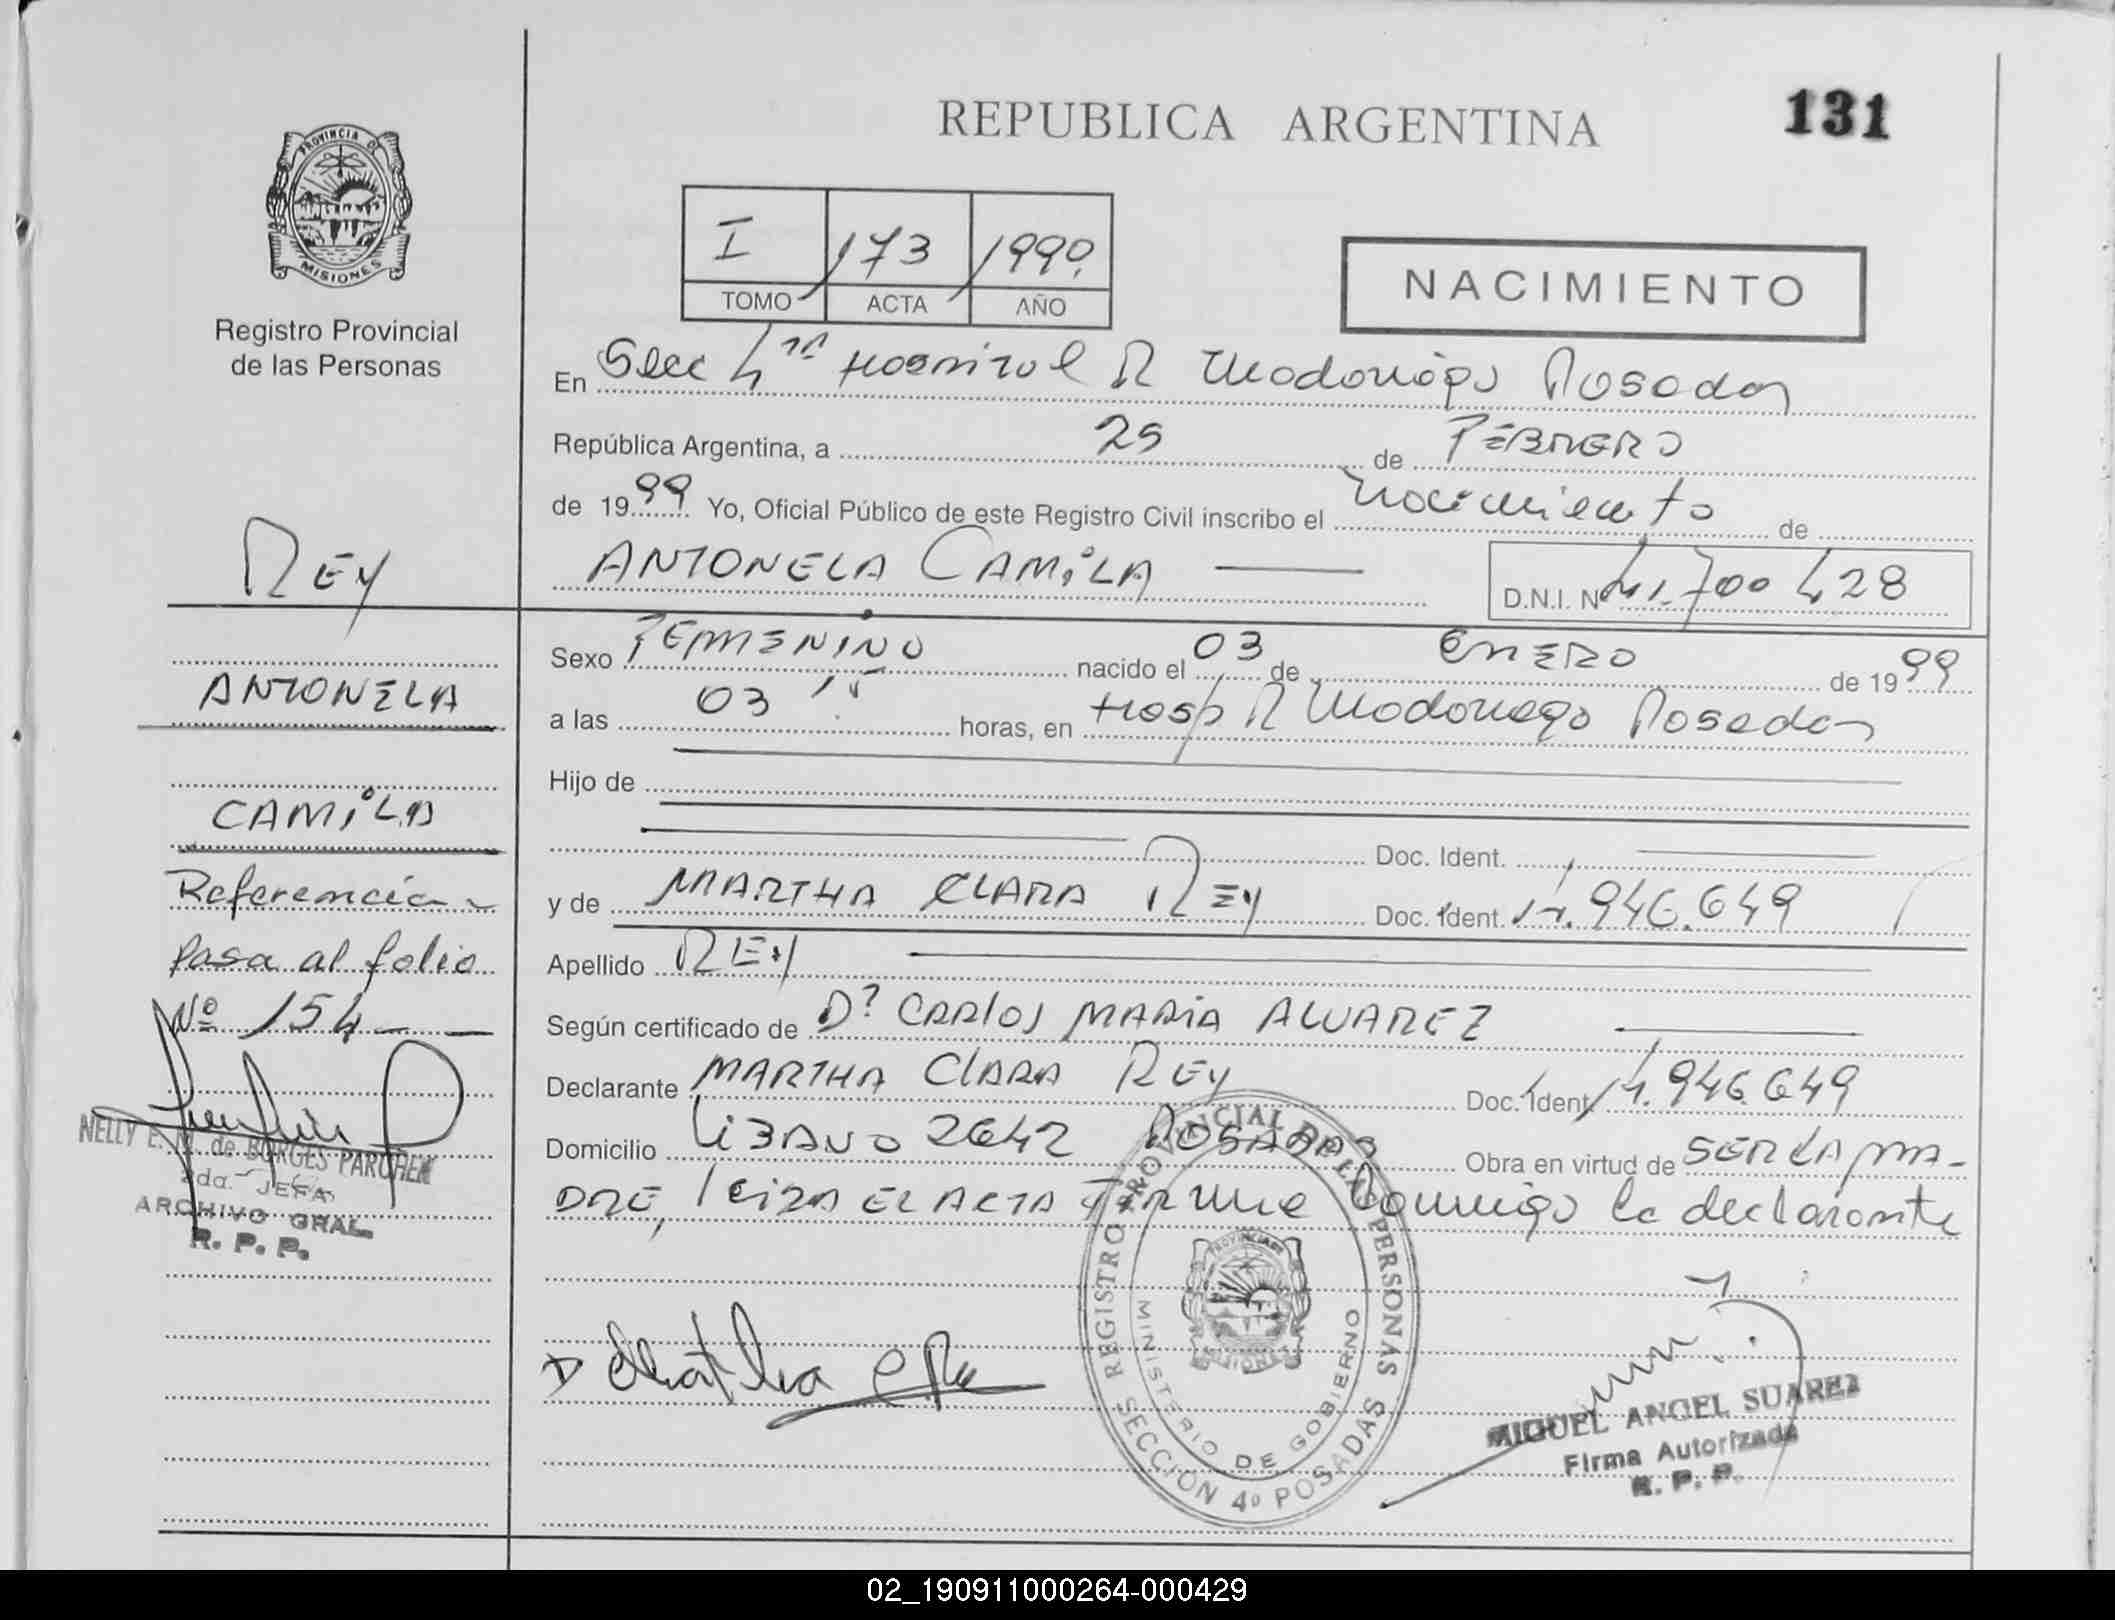 REPUBLICA ARGENTINA
131
PROVINCIA DE
MISIONES
Registro Provincial
de las Personas
I 173 1999.
TOMO ACTA AÑO
NACIMIENTO
En Secc 4ta Hospital R Madariaga Posadas
República Argentina, a 25 de FEBRERO
de 1999 Yo, Oficial Público de este Registro Civil inscribo el Nacimiento de
ANTONELA CAMILA
D.N.I. Nº 41.700 428
REY
ANTONELA
CAMILA
Referencia
Pasa al folio
Nº 154
NELLY E. M. de BORGES PARCHEN
2da. JEFA
ARCHIVO GRAL.
R. P. P.
Sexo FEMENINO nacido el 03 de ENERO de 1999
a las 03 horas, en Hosp R Madariaga Posadas
Hijo de
Doc. Ident.
y de MARTHA CLARA REY Doc. Ident. 14.946.649
Apellido REY
Según certificado de Dr CARLOS MARIA ALVAREZ
Declarante MARTHA CLARA REY Doc. Ident. 14.946.649
Domicilio LIZASO 2642 POSADAS Obra en virtud de SER LA MA-
DRE, LEIDA EL ACTA Firma Conmigo la declarante
REGISTRO PROVINCIAL DE LAS PERSONAS
MINISTERIO DE GOBIERNO
SECCION 4º POSADAS
MIGUEL ANGEL SUAREZ
Firma Autorizada
R. P. P.
02_190911000264-000429